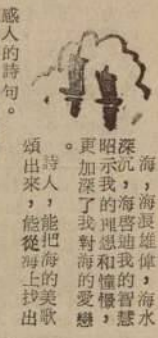 海，海浪雄偉，海水
深沉，海啓迪我的智慧
昭示我的思和憧憬，
更加深了我對海的愛戀
。
詩人，能把海的美歌
頌出來，能從海上找出
感人的詩句。